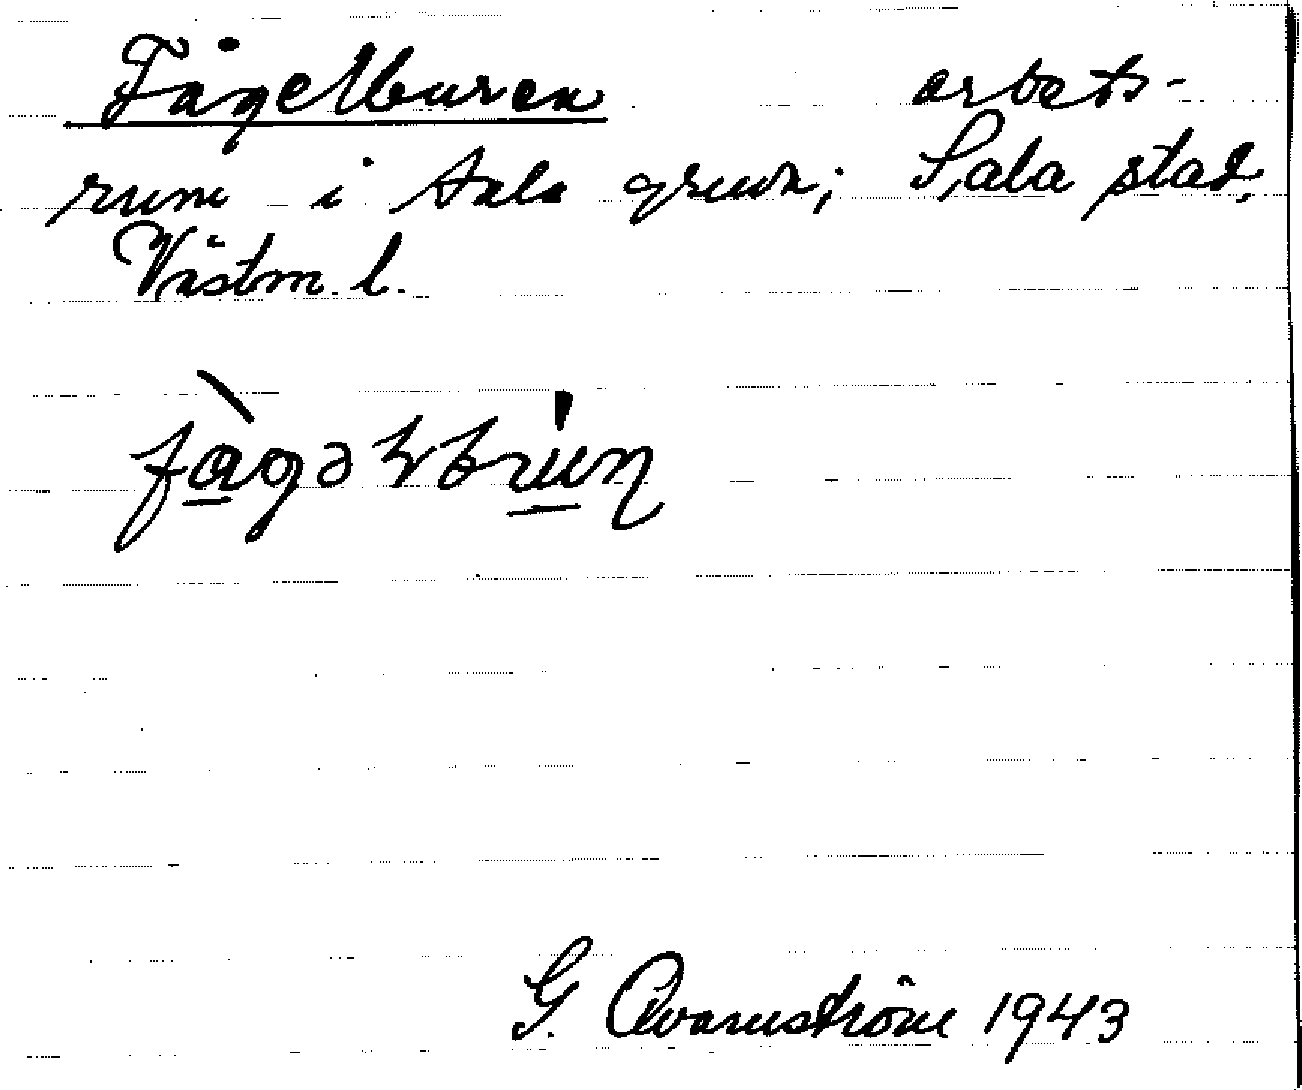 Fågelburen arbets-
rum i Sala gruva; Sala stad,
Västm. l.
G. Qvarnström 1943